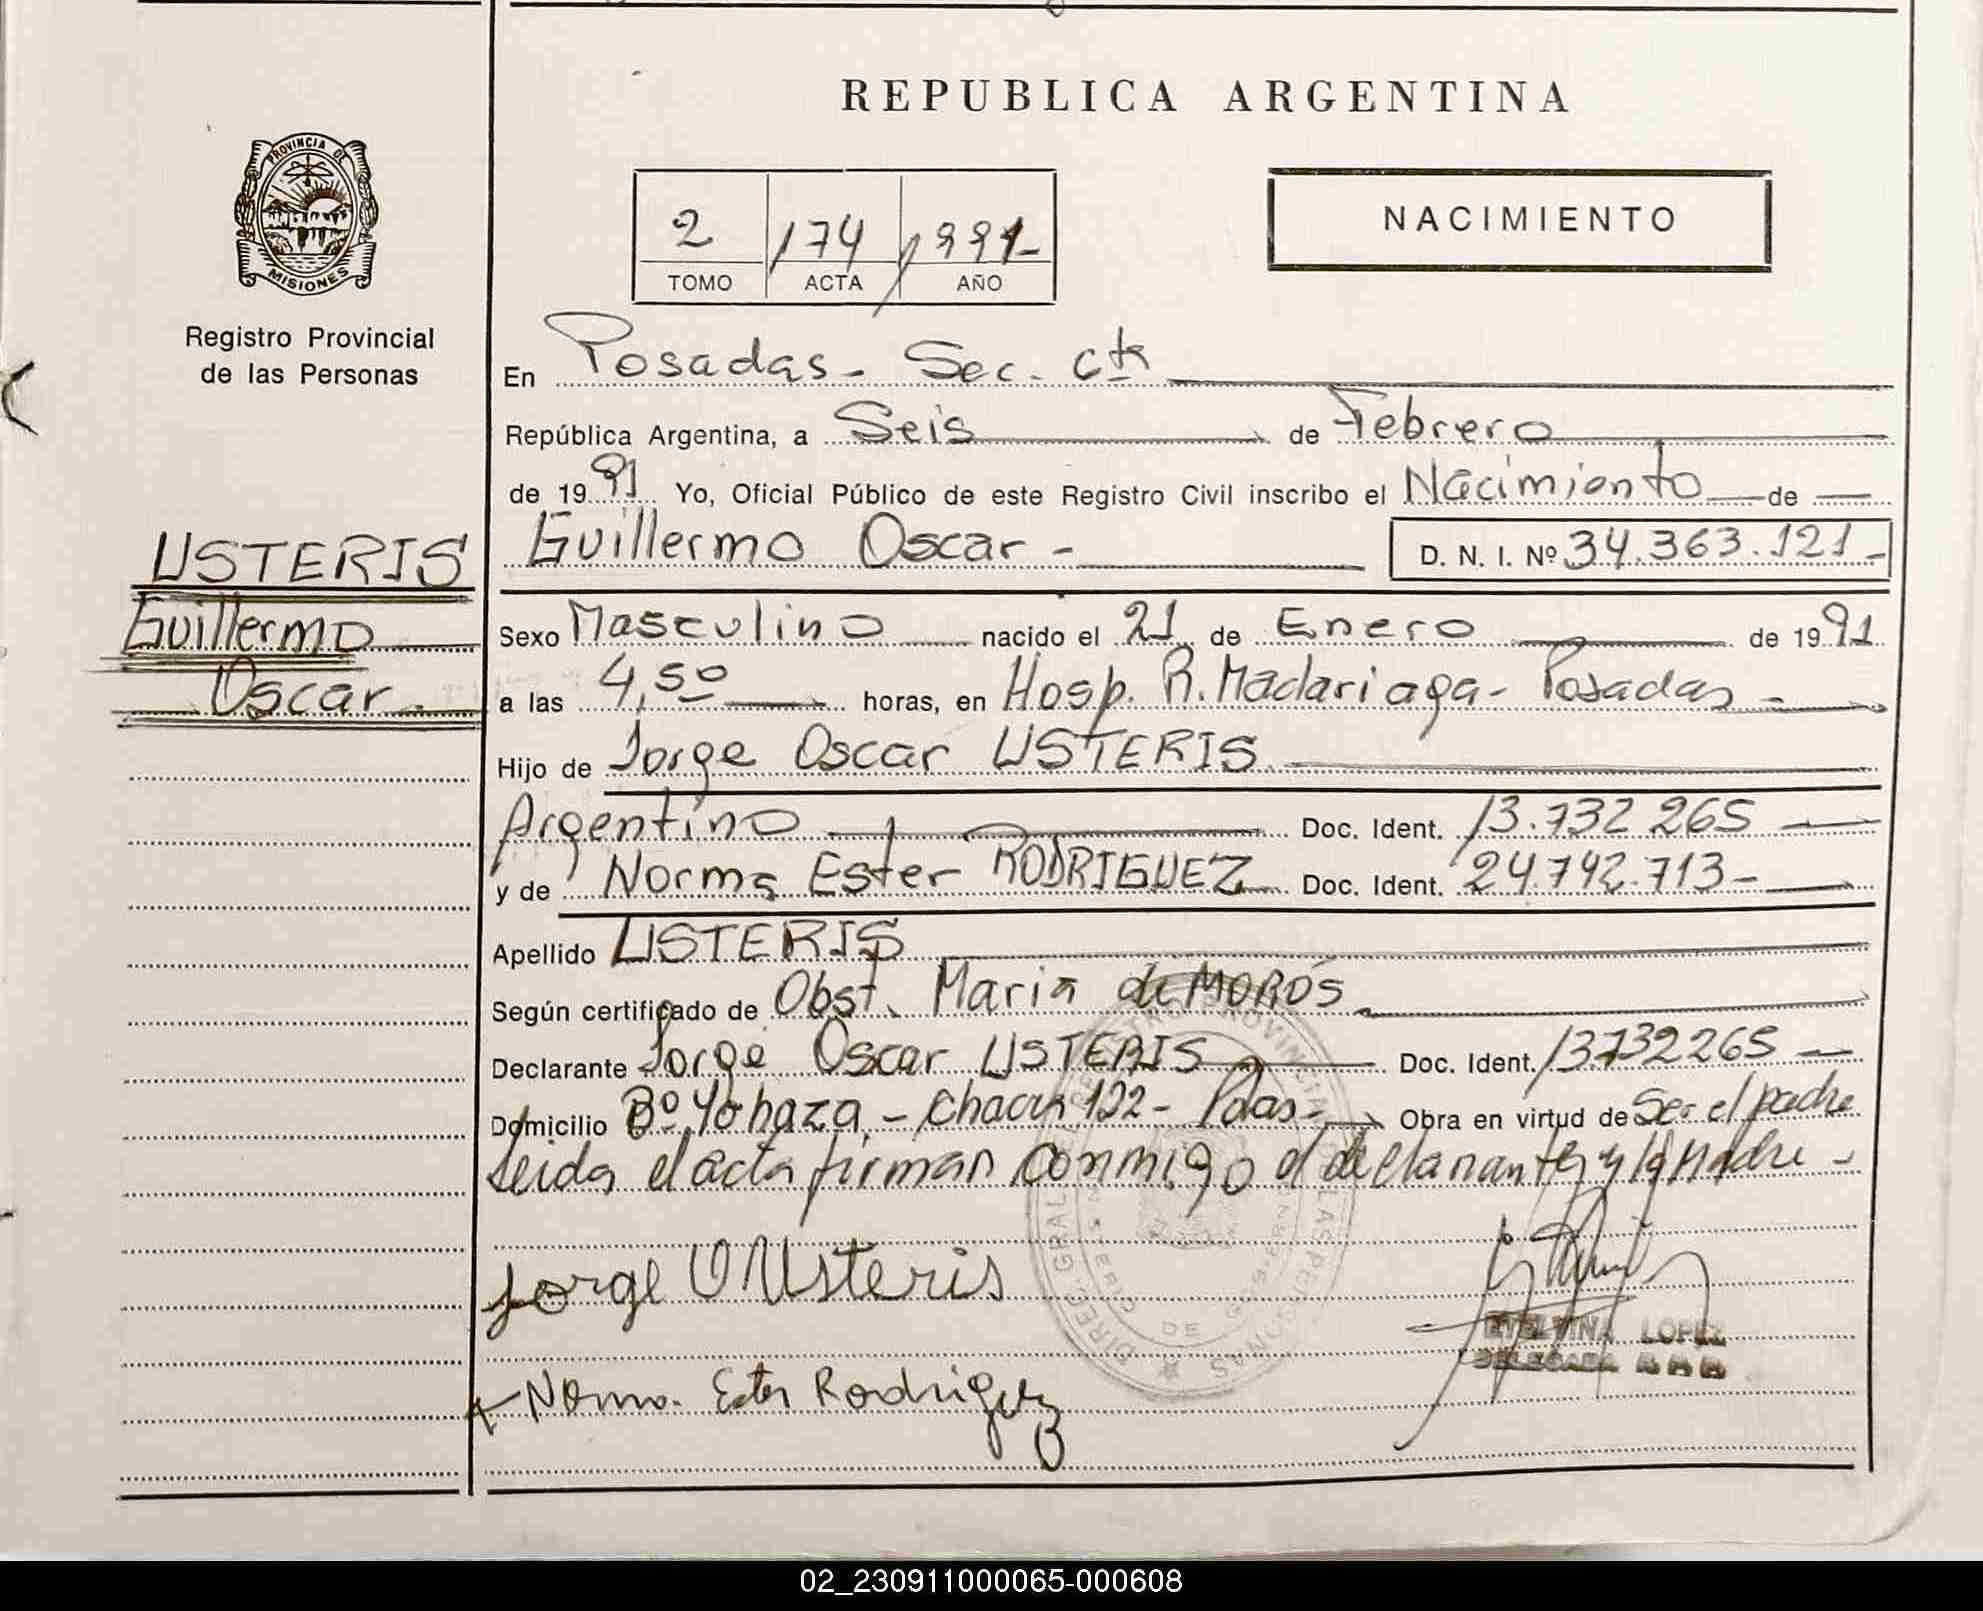 REPUBLICA ARGENTINA
PROVINCIA DE
MISIONES
Registro Provincial
de las Personas
2 174 1991-
TOMO ACTA AÑO
NACIMIENTO
En Posadas - Sec. Ctr
República Argentina, a Seis de Febrero
de 19 91 Yo, Oficial Público de este Registro Civil inscribo el Nacimiento de
USTERIS
Guillermo
Oscar
Guillermo Oscar - D. N. I. Nº 34.363.121-
Sexo Masculino nacido el 21 de Enero de 19 91
a las 4,50 horas, en Hosp. R. Madariaga - Posadas -
Hijo de Jorge Oscar USTERIS
Argentino Doc. Ident. 13.732 265
y de Norma Ester RODRIGUEZ Doc. Ident. 24.742.713-
Apellido USTERIS
Según certificado de Obst. Maria de MOROS
Declarante Jorge Oscar USTERIS Doc. Ident. 13732265
Domicilio Bº Yohaza - Chacra 122 - Pdas - Obra en virtud de Ser el padre
Leida el acta firman conmigo el declarante y la Madre -
Jorge O Usteris
ETELVINA LOPEZ
Norma Ester Rodriguez
02_230911000065-000608